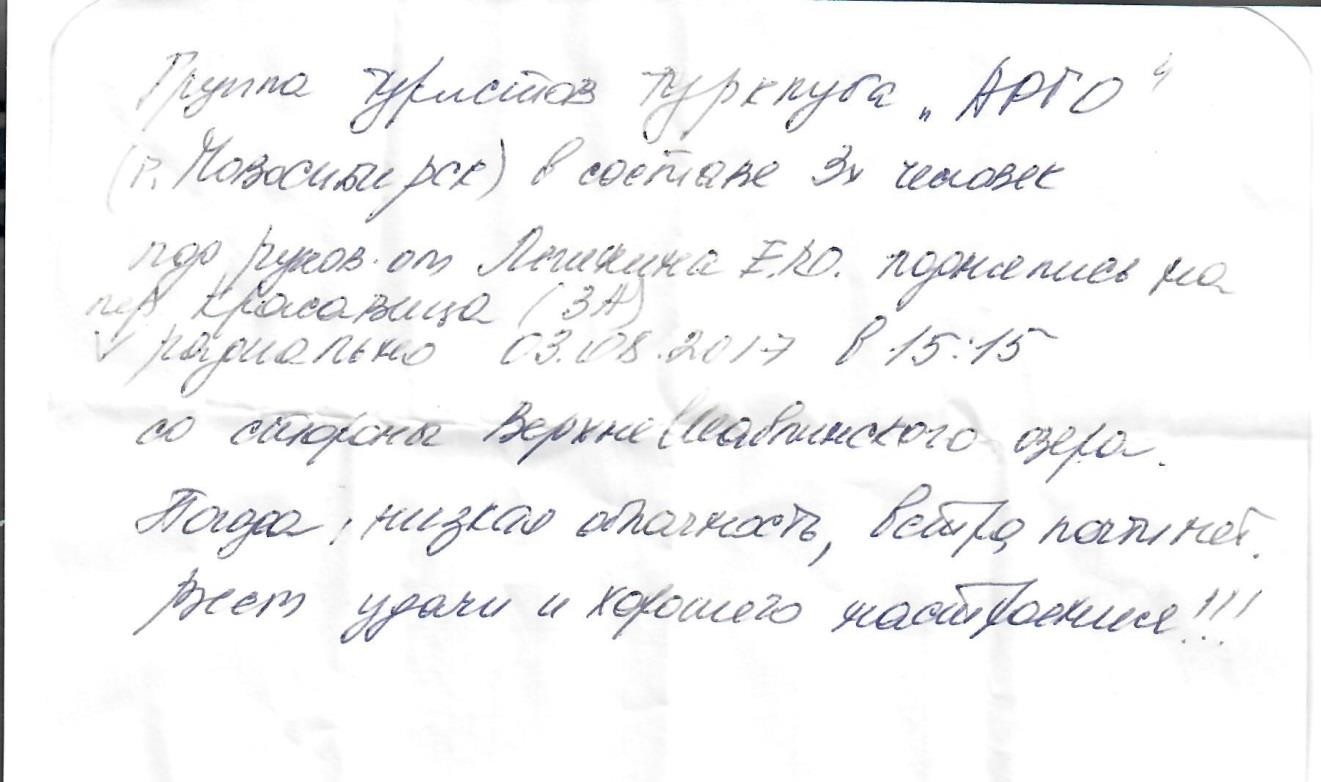 Группа туристов турклуба „АРГО“
(г. Новосибирск) в составе 3х человек
под руков-ом Е.Ю. поднялись на
пер Красавица (3А)
V радиально 03.08.2017 в 15:15
со стороны ВерхнеШавлинского озера.
Погода: низкая облачность, ветра почти нет.
Всем удачи и хорошего настроения!!!